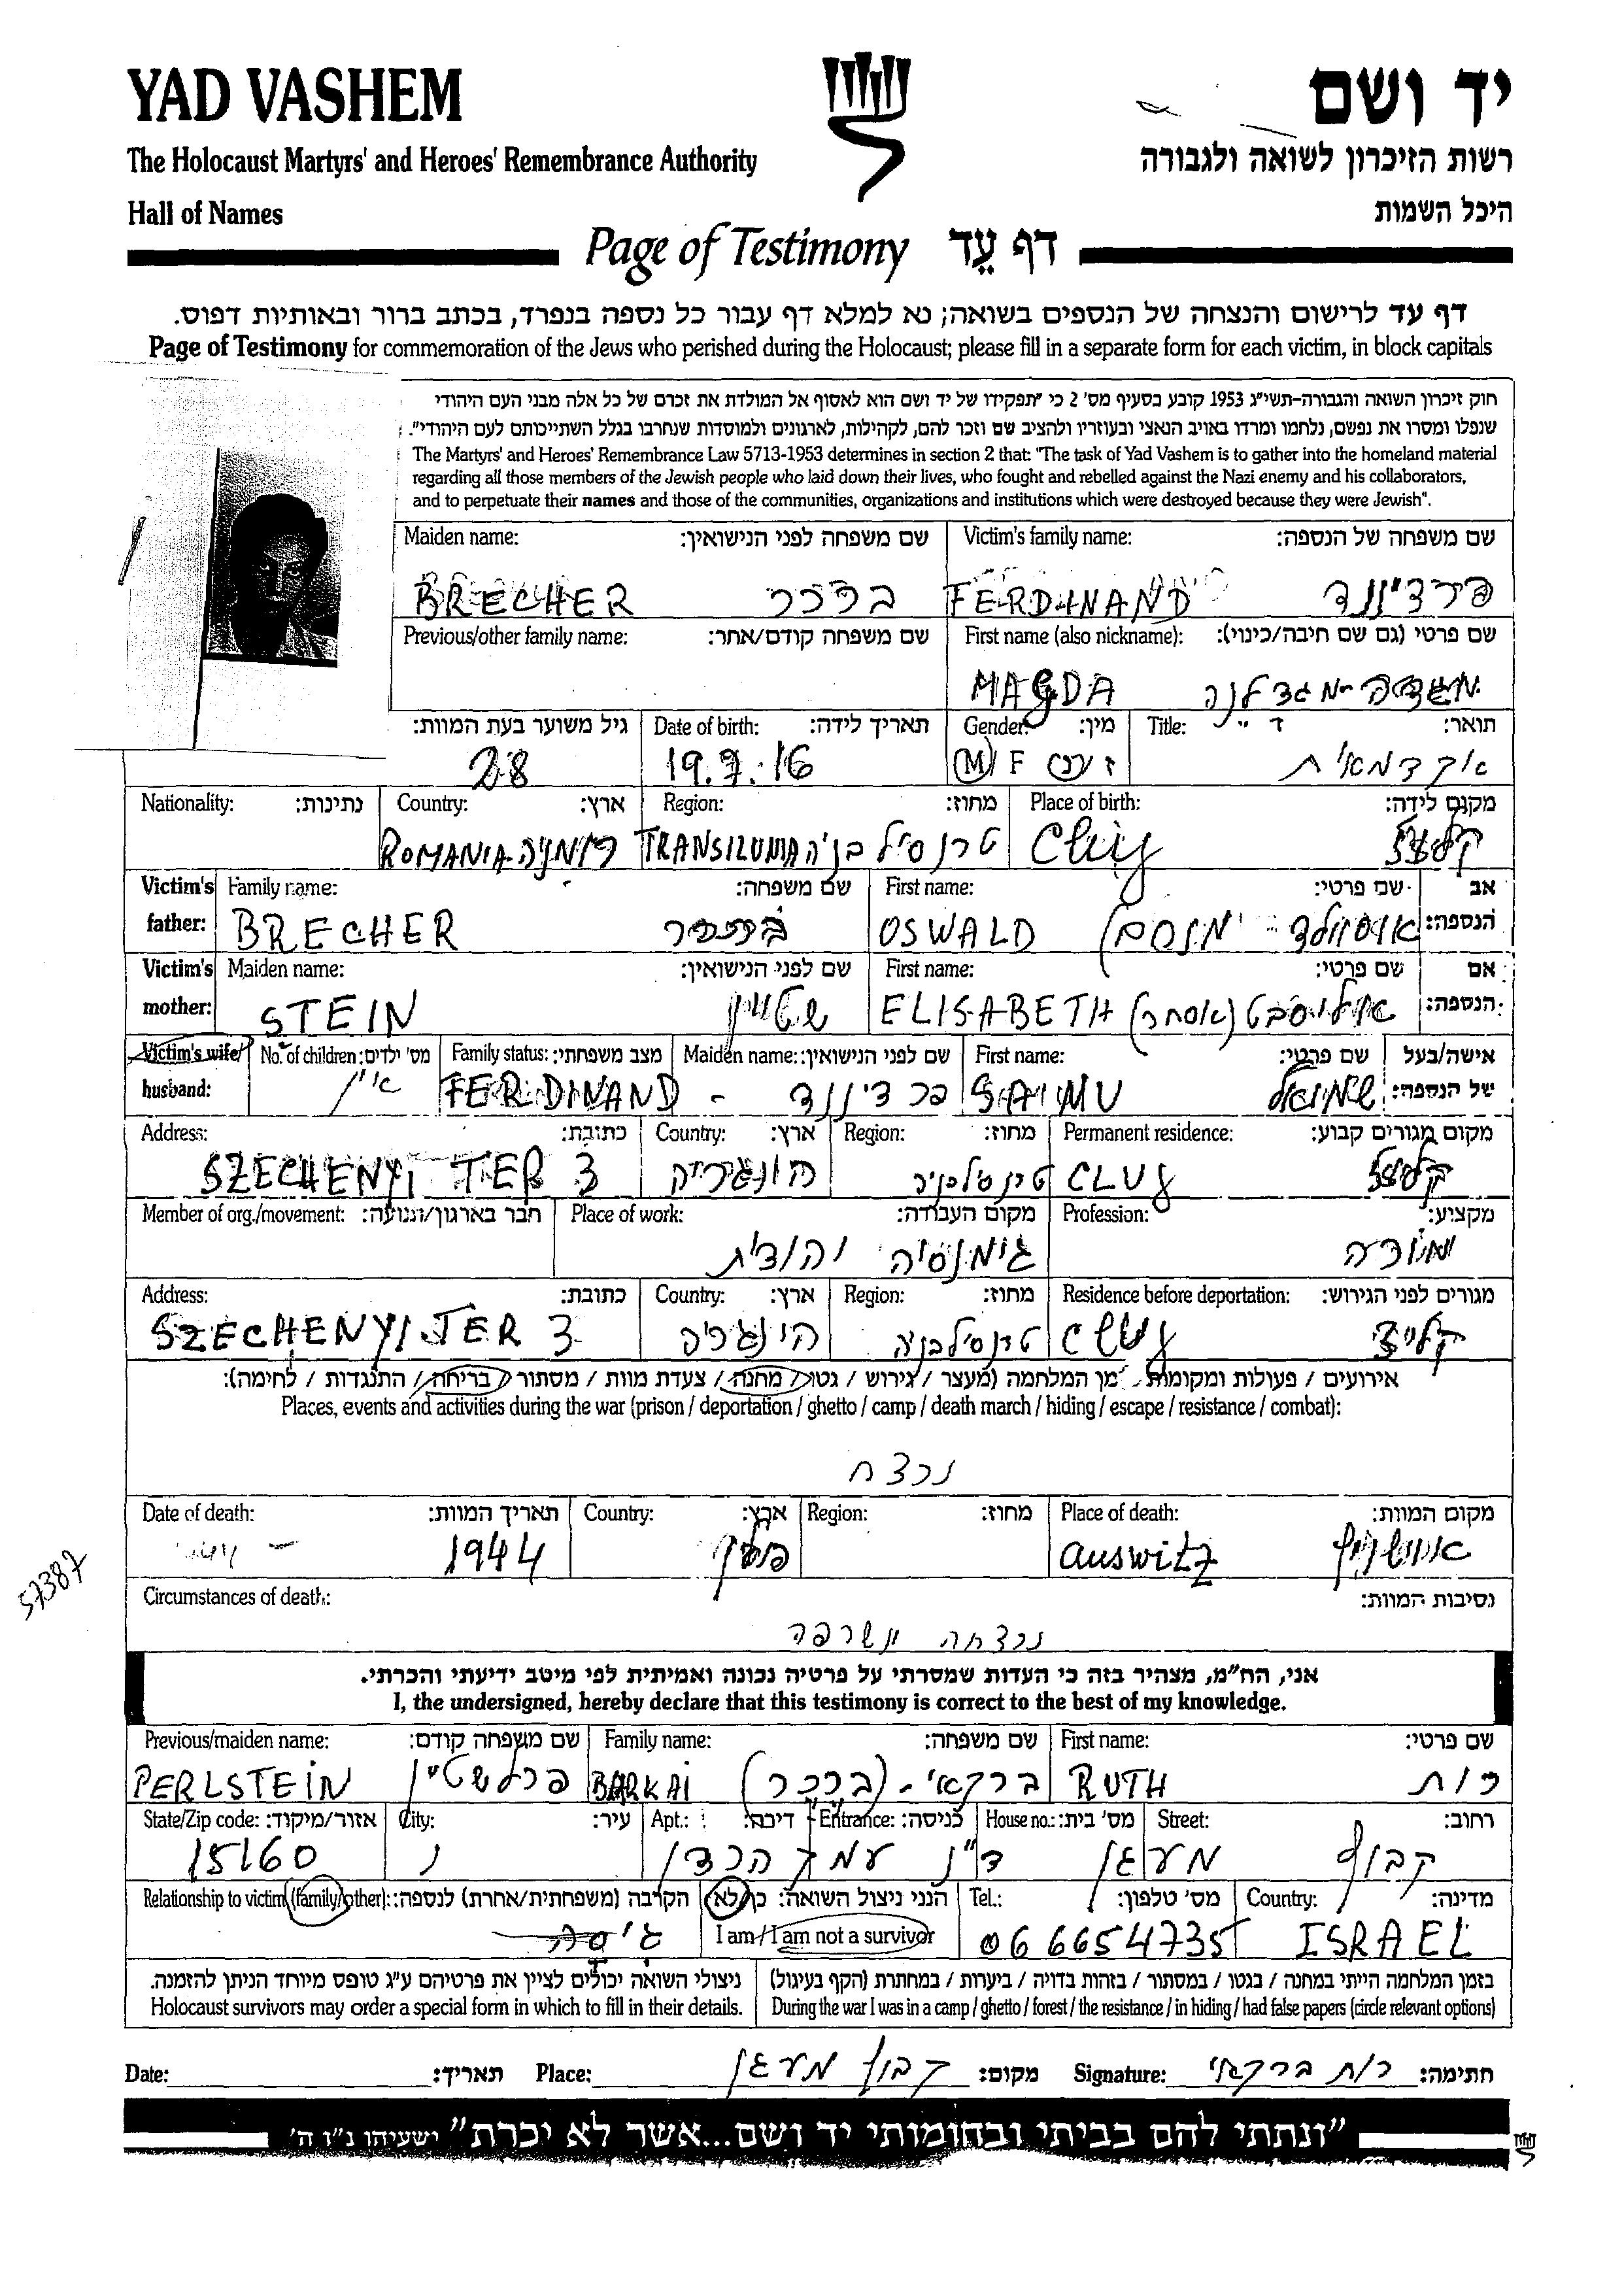 YAD VASHEM יד ושם
The Holocaust Martyrs' and Heroes' Remembrance Authority רשות הזיכרון לשואה ולגבורה
Hall of Names היכל השמות
Page of Testimony דף עֵד
דף עד לרישום והנצחה של הנספים בשואה; נא למלא דף עבור כל נספה בנפרד, בכתב ברור ובאותיות דפוס.
Page of Testimony for commemoration of the Jews who perished during the Holocaust; please fill in a separate form for each victim, in block capitals
חוק זיכרון השואה והגבורה-תשי״ג 1953 קובע בסעיף מס' 2 כי "תפקידו של יד ושם הוא לאסוף אל המולדת את זכרם של כל אלה מבני העם היהודי
שנפלו ומסרו את נפשם, נלחמו ומרדו באויב הנאצי ובעוזריו ולהציב שם וזכר להם, לקהילות, לארגונים ולמוסדות שנחרבו בגלל השתייכותם לעם היהודי".
The Martyrs' and Heroes' Remembrance Law 5713-1953 determines in section 2 that: "The task of Yad Vashem is to gather into the homeland material
regarding all those members of the Jewish people who laid down their lives, who fought and rebelled against the Nazi enemy and his collaborators,
and to perpetuate their names and those of the communities, organizations and institutions which were destroyed because they were Jewish".
Maiden name: שם משפחה לפני הנישואין: Victim's family name: שם משפחה של הנספה:
BRECHER ברכר FERDINAND פרדיננד
Previous/other family name: שם משפחה קודם/אחר: First name (also nickname): שם פרטי (גם שם חיבה/כינוי):
MAGDA מגדה-מגדלנה
גיל משוער בעת המוות: Date of birth: תאריך לידה: Gender: מין: Title: ד"י תואר:
28 19.7.16 M F ז נ אקדמאית
Nationality: נתינות: Country: ארץ: Region: מחוז: Place of birth: מקום לידה:
ROMANIA-רומניה TRANSILVNIA טרנסילבניה Cluj קלוז
Victim's father: Family name: שם משפחה: First name: שם פרטי: אב הנספה:
BRECHER ברכר OSWALD אוסוולד
Victim's mother: Maiden name: שם לפני הנישואין: First name: שם פרטי: אם הנספה:
STEIN שטיין ELISABETH אליסבט (אסתר)
Victim's wife/ husband: No. of children: מס' ילדים: Family status: מצב משפחתי: Maiden name: שם לפני הנישואין: First name: שם פרטי: אישה/בעל של הנספה:
אין FERDINAND - פרדיננד SAMU שמואל
Address: כתובת: Country: ארץ: Region: מחוז: Permanent residence: מקום מגורים קבוע:
SZECHENYI TER 3 הונגריה CLUJ
Member of org./movement: חבר בארגון/תנועה: Place of work: מקום העבודה: Profession: מקצוע:
גימנסיה יהודית מורה
Address: כתובת: Country: ארץ: Region: מחוז: Residence before deportation: מגורים לפני הגירוש:
SZECHENYI TER 3 הונגריה טרנסילבניה CLUJ
אירועים / פעולות ומקומות בזמן המלחמה (מעצר / גירוש / גטו / מחנה / צעדת מוות / מסתור / בריחה / התנגדות / לחימה):
Places, events and activities during the war (prison / deportation / ghetto / camp / death march / hiding / escape / resistance / combat):
נרצח
Date of death: תאריך המוות: Country: ארץ: Region: מחוז: Place of death: מקום המוות:
1944 פולין Auswitz אושוויץ
57387
Circumstances of death: נסיבות המוות:
נרצחה ונשרפה
אני, הח״מ, מצהיר בזה כי העדות שמסרתי על פרטיה נכונה ואמיתית לפי מיטב ידיעתי והכרתי.
I, the undersigned, hereby declare that this testimony is correct to the best of my knowledge.
Previous/maiden name: שם משפחה קודם: Family name: שם משפחה: First name: שם פרטי:
PERLSTEIN פרלשטיין BARKAI ברקאי-(ברכר) RUTH רות
State/Zip code: אזור/מיקוד: City: עיר: Apt.: דירה: Entrance: כניסה: House no.: מס' בית: Street: רחוב:
15160 ד"נ עמק הירדן קבוץ מעגן
Relationship to victim (family/other): הקרבה (משפחתית/אחרת) לנספה: הנני ניצול השואה: כן/לא Tel.: מס' טלפון: Country: מדינה:
גיסה I am / I am not a survivor 06 6654735 ISRAEL
ניצולי השואה יכולים לציין את פרטיהם ע״ג טופס מיוחד הניתן להזמנה. בזמן המלחמה הייתי במחנה / בגטו / במסתור / בזהות בדויה / ביערות / במחתרת (הקף בעיגול)
Holocaust survivors may order a special form in which to fill in their details. During the war I was in a camp / ghetto / forest / the resistance / in hiding / had false papers (circle relevant options)
Date: תאריך: Place: קבוץ מעגן מקום: Signature: רות ברקאי חתימה:
"ונתתי להם בביתי ובחומותי יד ושם...אשר לא יכרת" ישעיהו נ״ו ה'